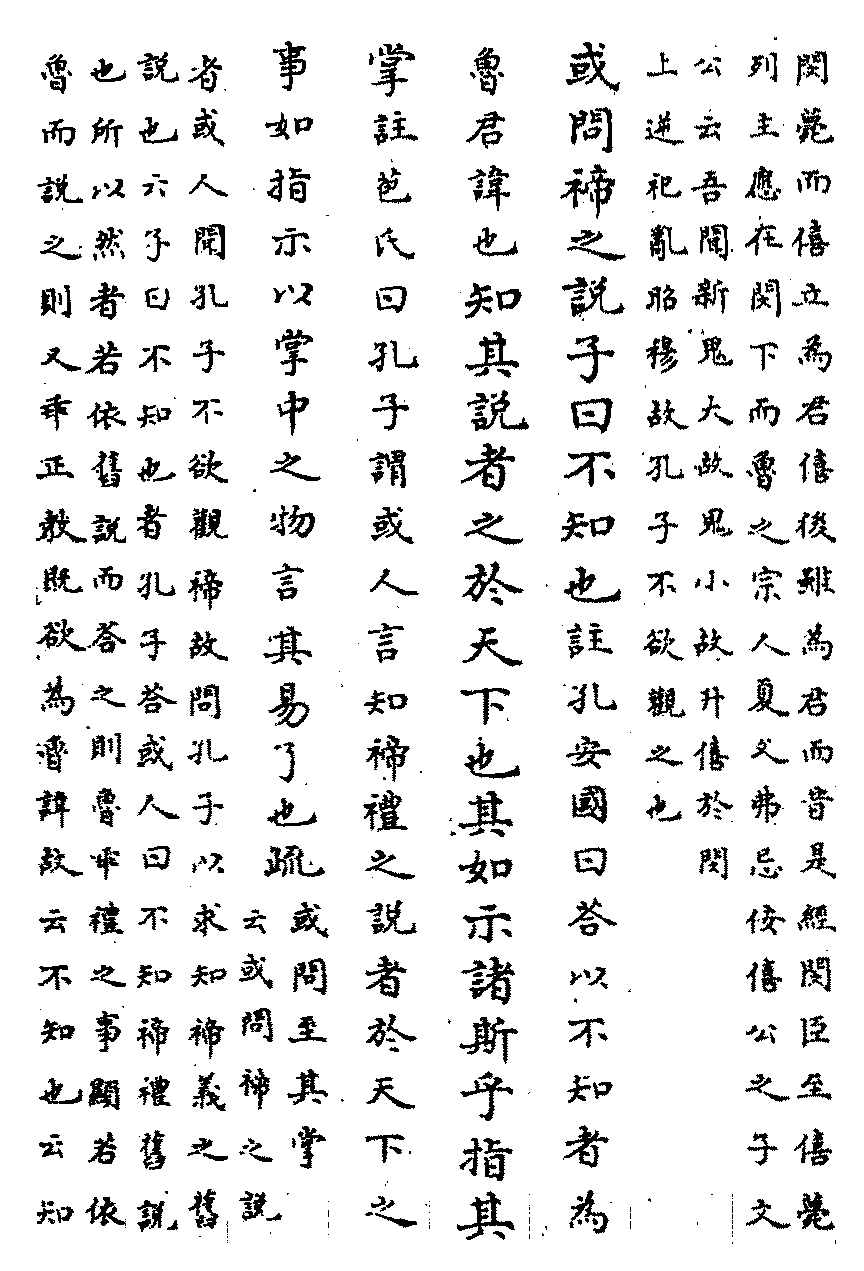 閔薨而僖立為君僖後雖為君而昔是經閔臣至僖薨
列主應在閔下而魯之宗人夏父弗忌佞僖公之子文
公云吾聞新鬼大故鬼小故升僖於閔
上逆祀亂昭穆故孔子不欲觀之也
或問禘之說子曰不知也註孔安國曰荅以不知者為
魯君諱也知其說者之於天下也其如示諸斯乎指其
掌註苞氏曰孔子謂或人言知禘禮之說者於天下之
事如指示以掌中之物言其易了也疏
或問至其掌
云或問禘之說
者或人聞孔子不欲觀禘故問孔子以求知禘義之舊
說也云子曰不知也者孔子荅或人曰不知禘禮舊說
也所以然者若依舊說而荅之則魯乖禮之事顯若依
魯而說之則又乖正教既欲為魯諱故云不知也云知